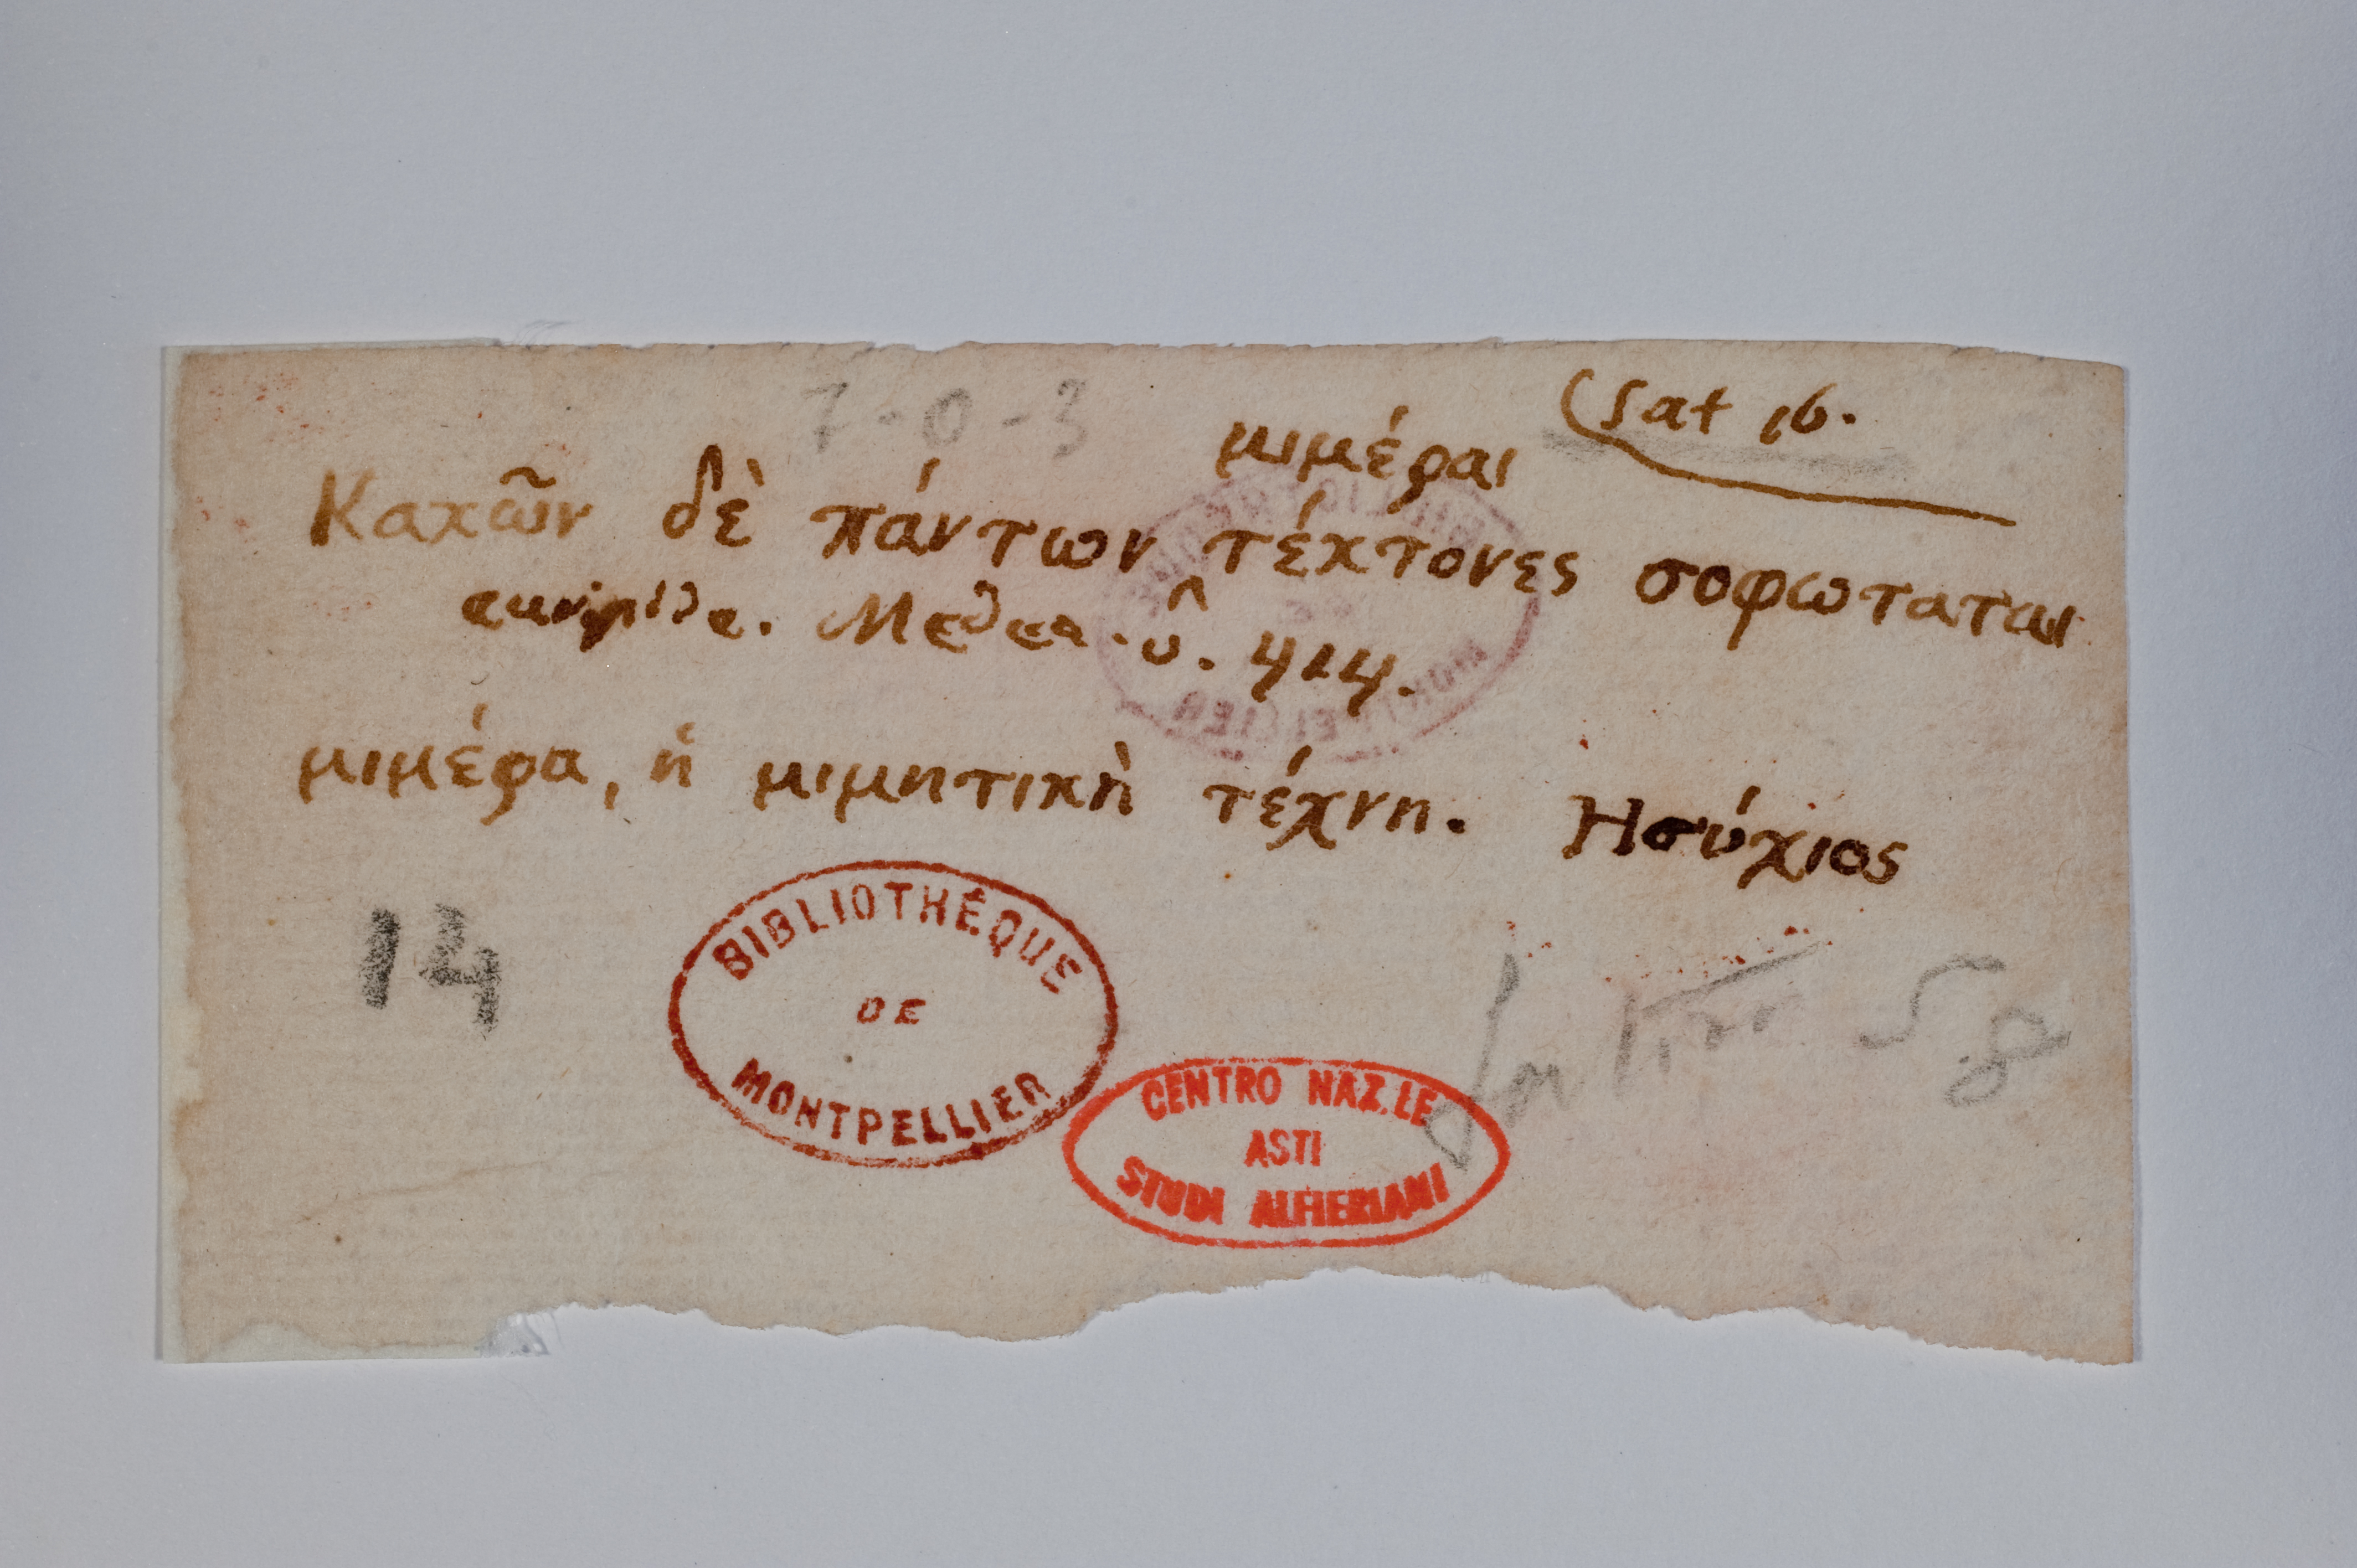 7-0-3
Sat 16.
μιμέραι
Κακῶν δὲ πάντων τέκτονες σοφωταται
Medea. v. 414.
μιμέρα, ἡ μιμητικὴ τέχνη. Ησύχιος
14
BIBLIOTHÉQUE
DE
MONTPELLIER
CENTRO NAZ.LE
ASTI
STUDI ALFIERIANI